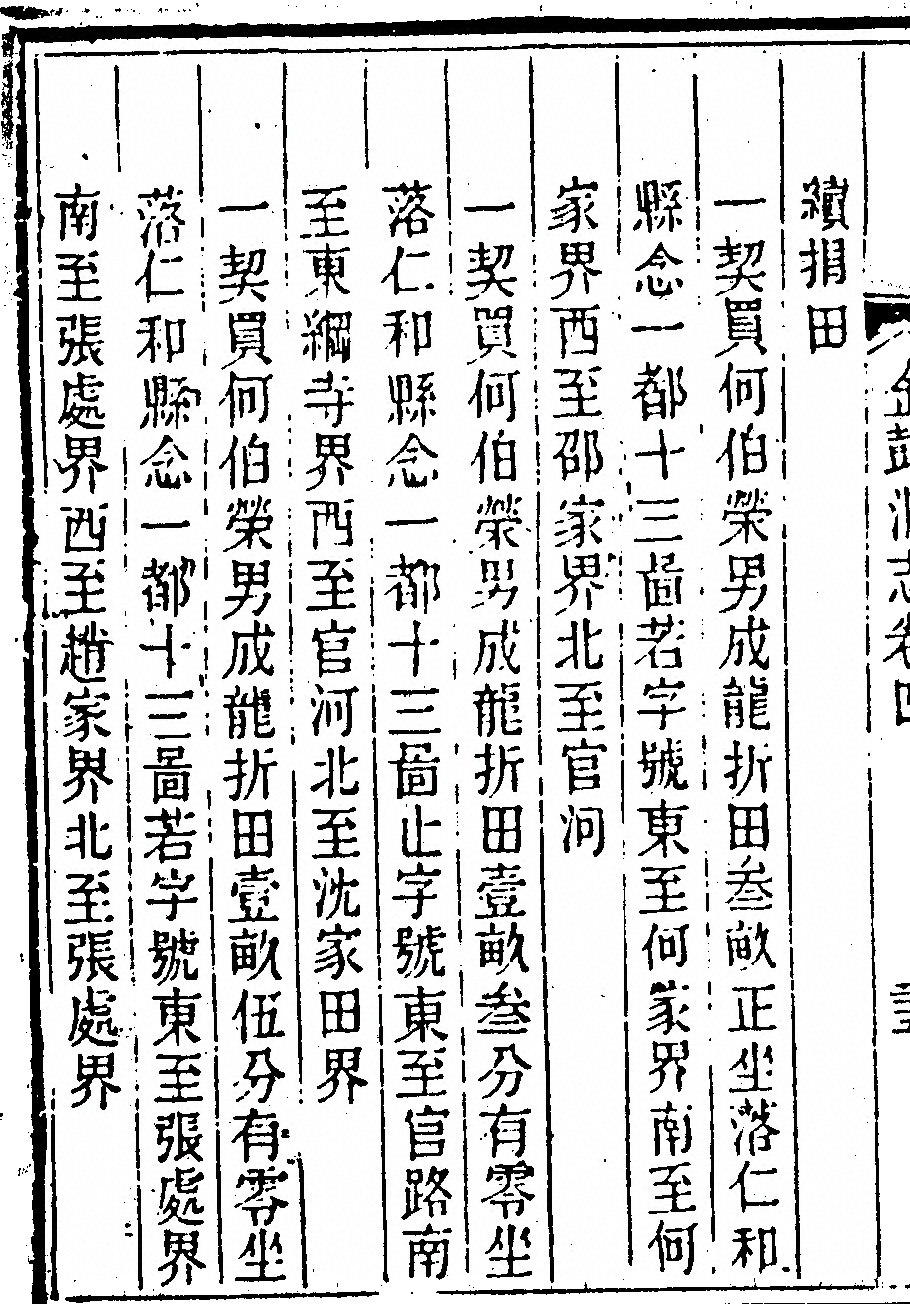 續捐田
一契買何伯榮男成龍折田叁畝正坐落仁和
縣念一都十三啚若字號東至何家界南至何
家界西至邵家界北至官河
一契買何伯榮男成龍折田壹畝叁分有零坐
落仁和縣念一都十三啚止字號東至官路南
至東綱寺界西至官河北至沈家田界
一契買何伯榮男成龍折田壹畝伍分有零坐
落仁和縣念一都十三啚若字號東至張處界
南至張處界西至趙家界北至張處界